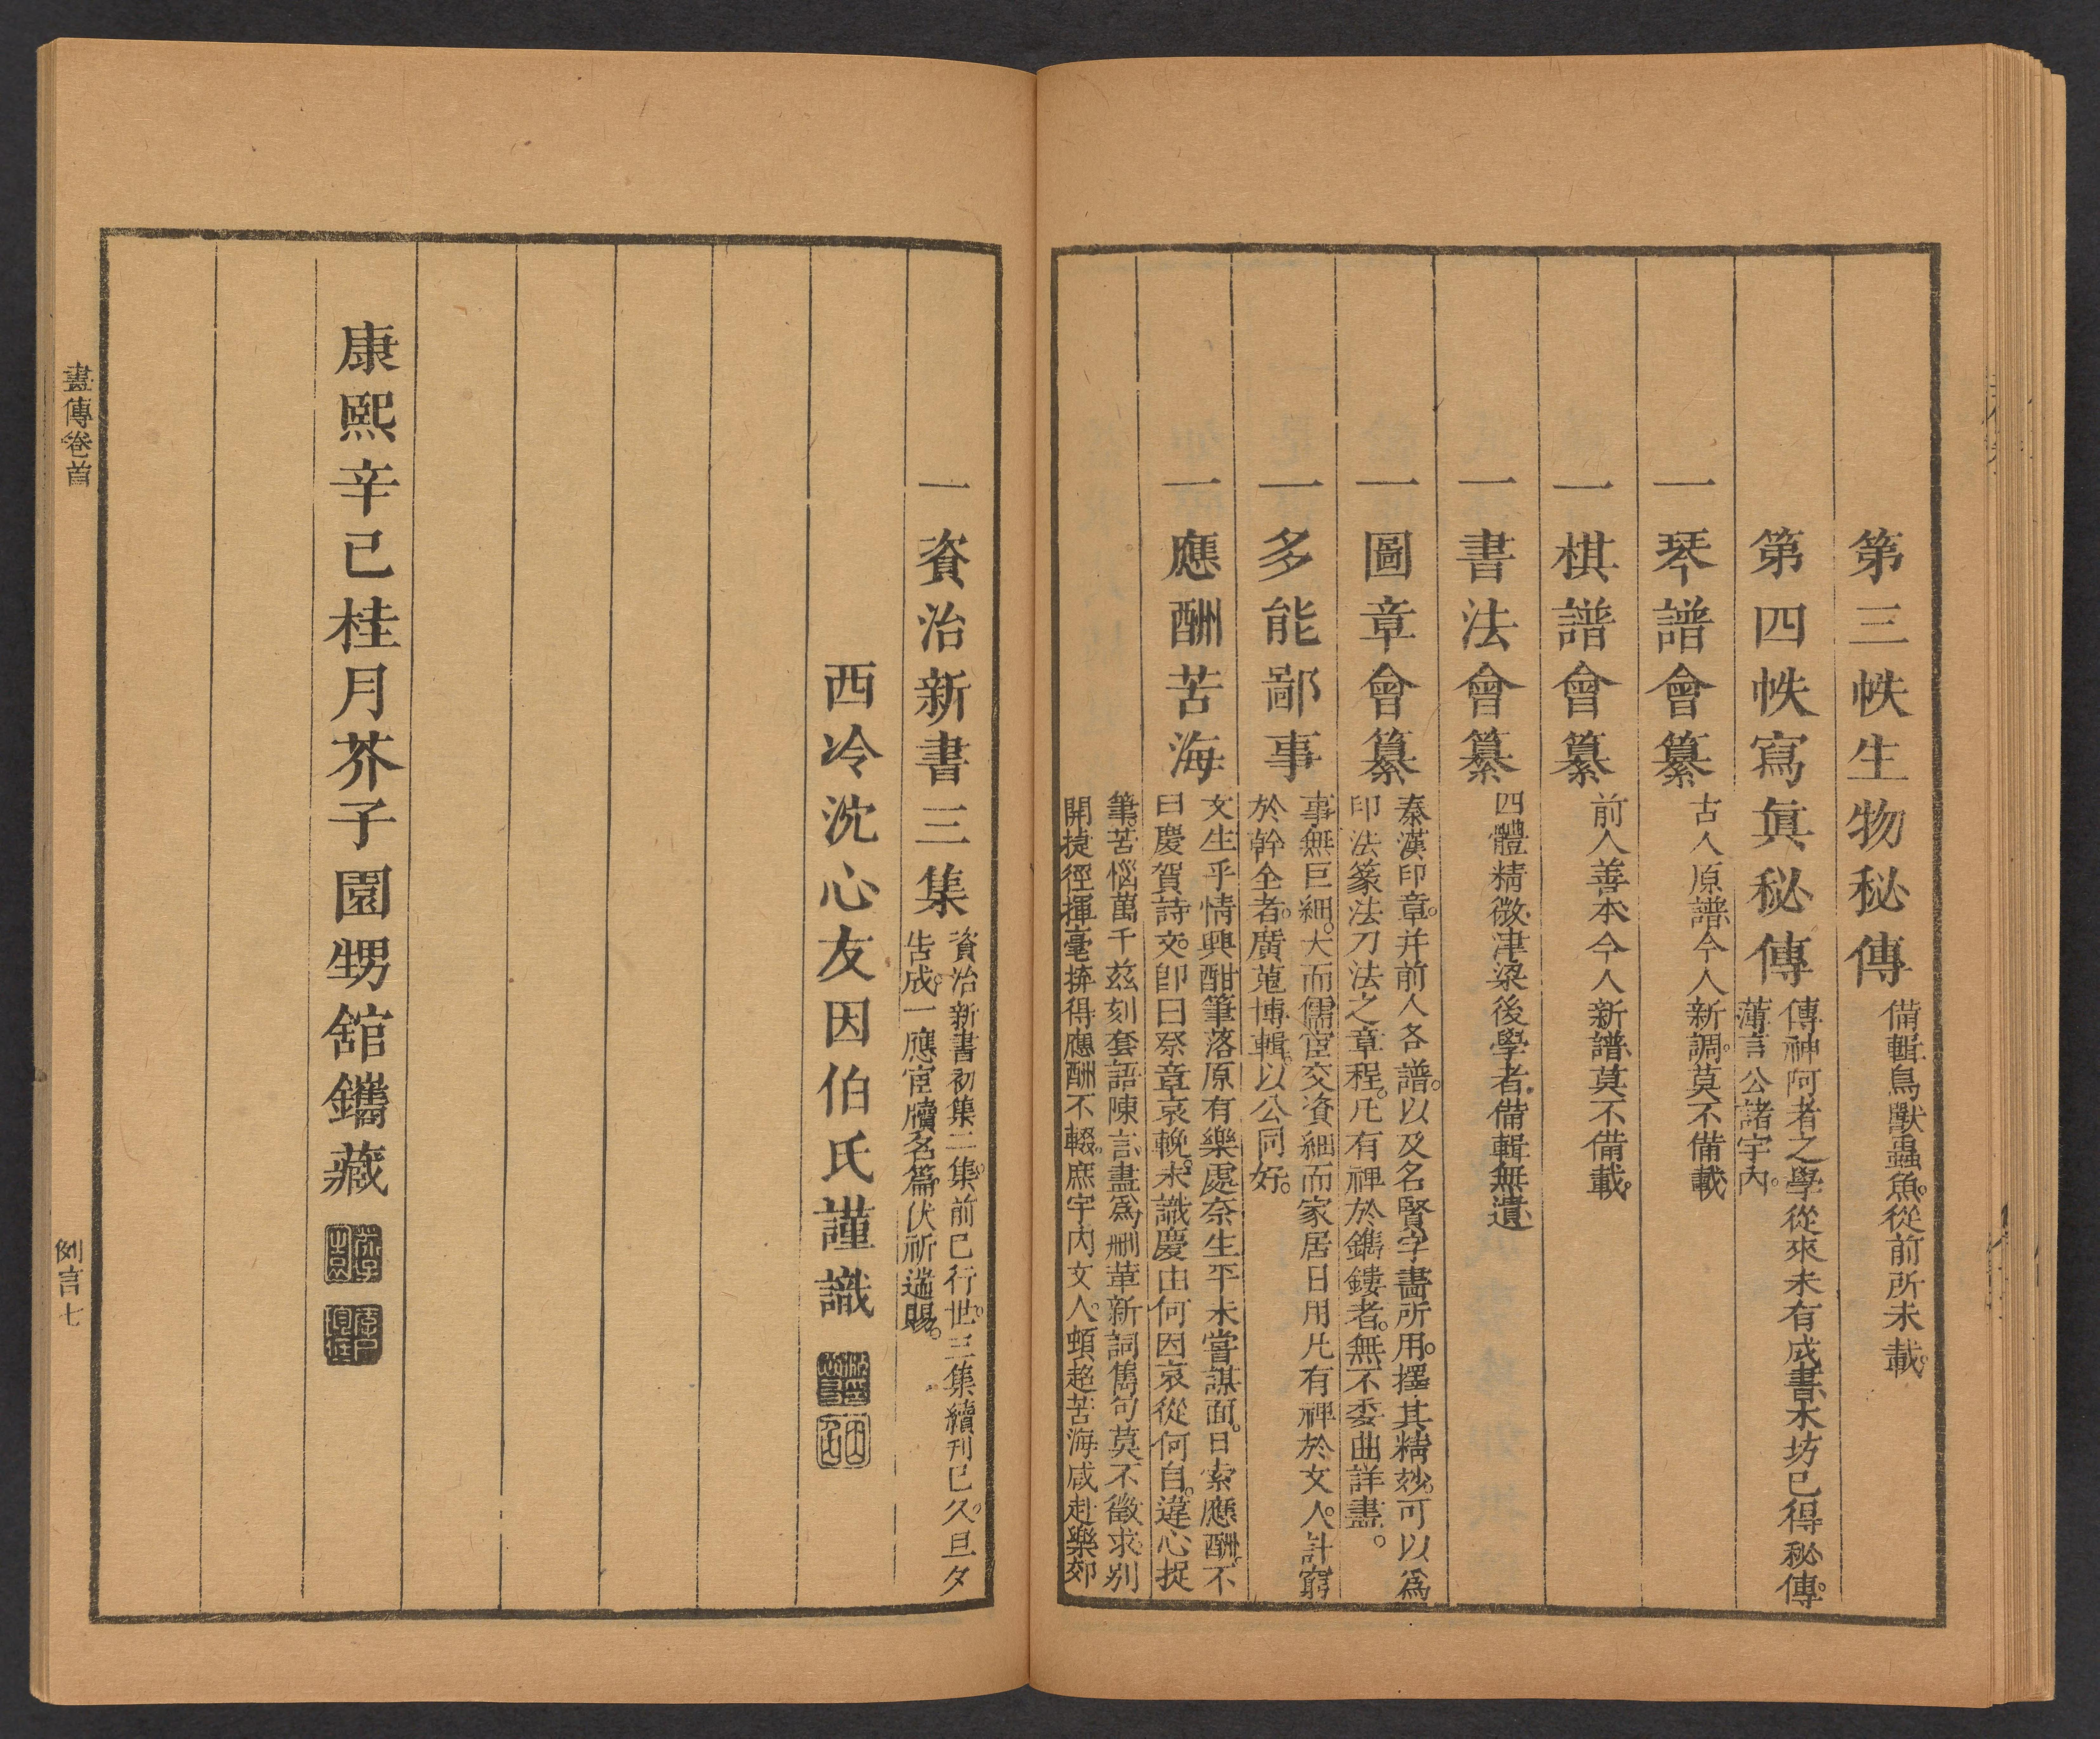 第三帙生物秘傳
備輯鳥獸蟲魚。從前所未載。
第四帙寫眞秘傳
傳神阿者之學從來未有成書。本坊已得秘傳。
薄言公諸宇內。
一琴譜會纂
古人原譜。今人新調。莫不備載
一棋譜會纂
前人善本。今人新譜。莫不備載。
一書法會纂
四體精微。津梁後學者。備輯無遺
一圖章會纂
秦漢印章。并前人各譜。以及名賢字畵所用。擇其精妙。可以爲
印法篆法刀法之章程。凡有裨於鐫鏤者。無不委曲詳盡。
一多能鄙事
事無巨細。大而儒宦交資。細而家居日用。凡有裨於文人。計窮
於幹全者。廣蒐博輯。以公同好。
一應酬苦海
文生乎情。興酣筆落。原有樂處。奈生平未嘗謀面。日索應酬。不
曰慶賀詩文。卽曰祭章哀輓。未識慶由何因。哀從何自。違心捉
筆。苦惱萬千。兹刻套語陳言。盡爲刪革。新詞雋句。莫不徵求。別
開捷徑。揮毫拚得應酬不輟。庶宇內文人。頓超苦海。咸赴樂郊
一資治新書三集
資治新書初集二集。前已行世。三集續刊已久。旦夕
告成。一應宦牘名篇。伏祈遄賜。
西泠沈心友因伯氏謹識
康熙辛已桂月芥子園甥舘鐫藏
畵傳卷首
例言七